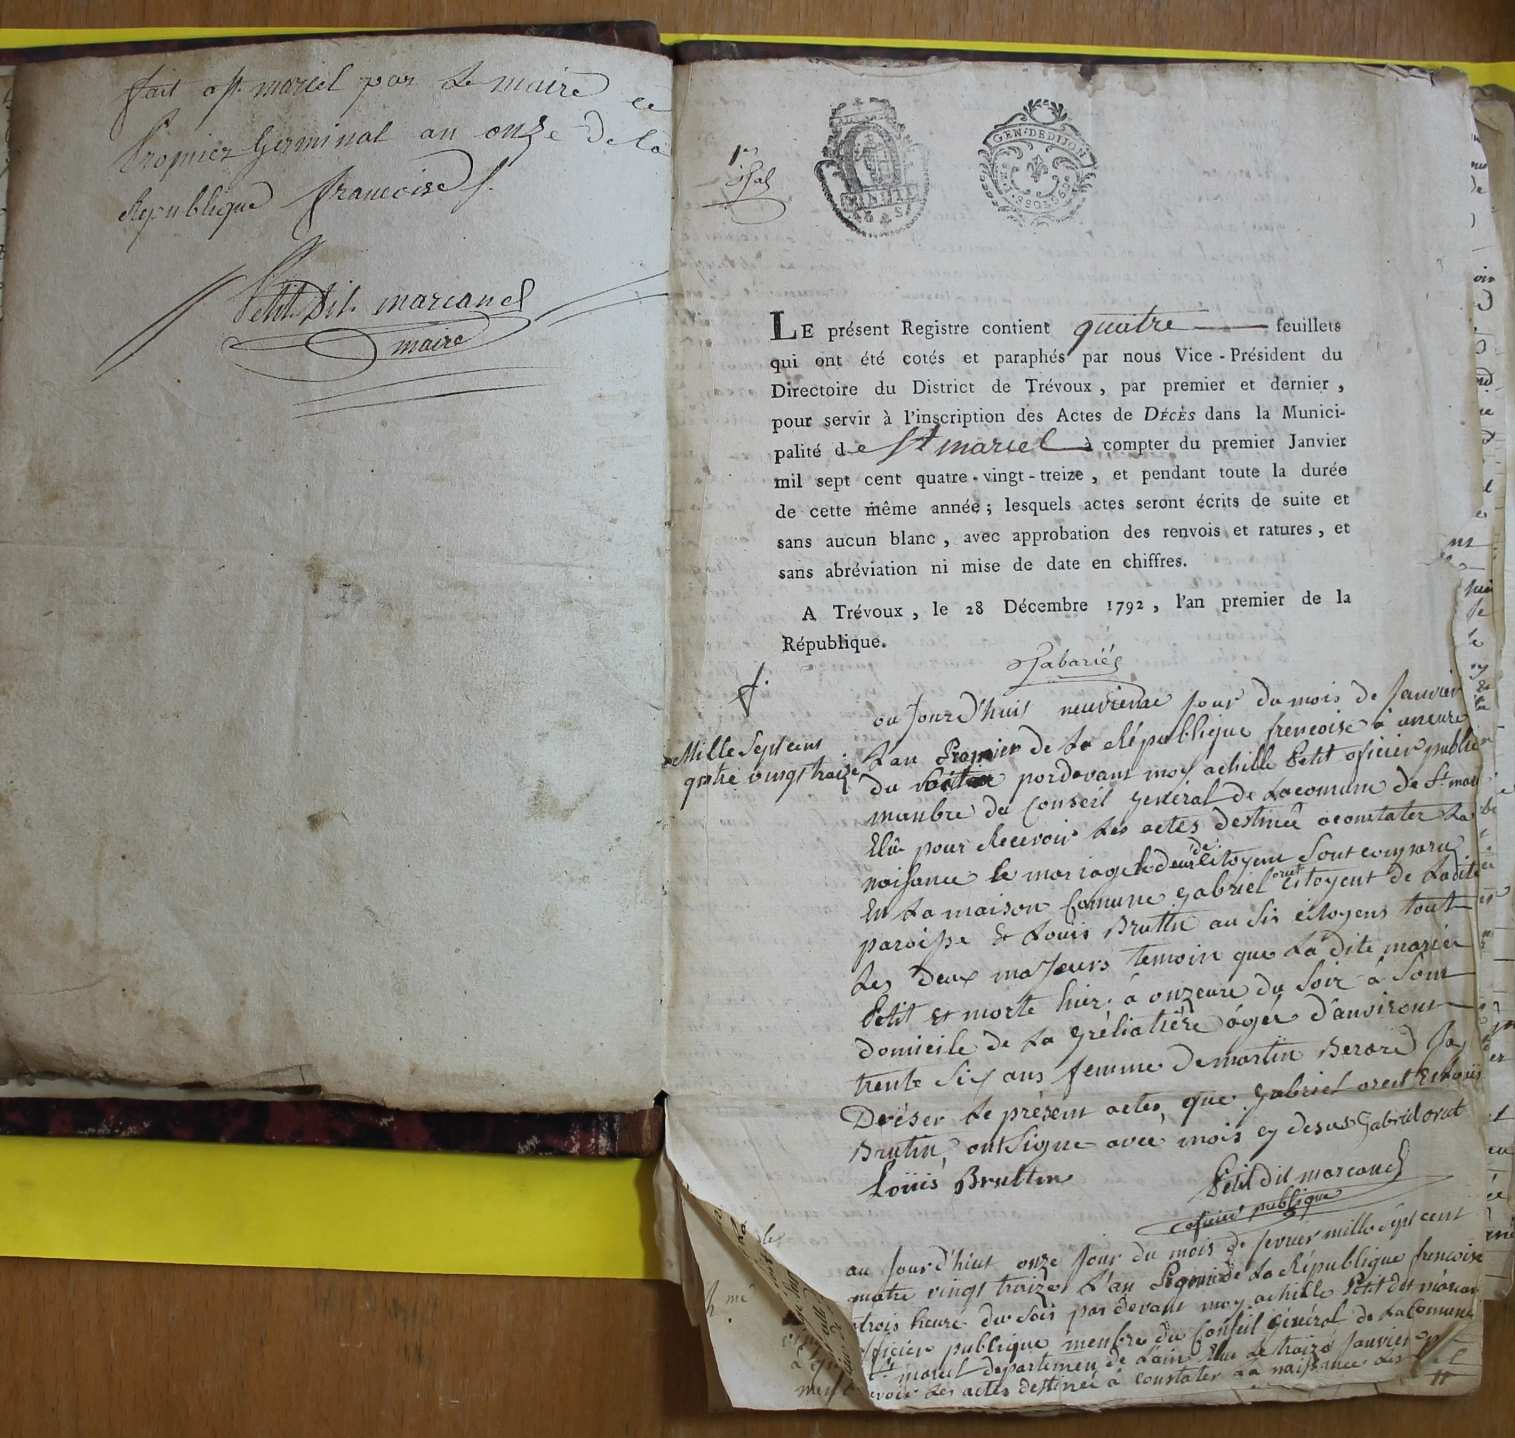 fait a st marcel par Le maire ce
Promier Germinal an onze de la
Republique francoise
Petit Dit marcanel
maire
1er
GEN. DE DIJON
LE présent Registre contient quatre feuillets
qui ont été cotés et paraphés par nous Vice-Président du
Directoire du District de Trévoux, par premier et dernier,
pour servir à l'inscription des Actes de DÉCÈS dans la Munici-
palité de St marcel à compter du premier Janvier
mil sept cent quatre-vingt-treize, et pendant toute la durée
de cette même année; lesquels actes seront écrits de suite et
sans aucun blanc, avec approbation des renvois et ratures, et
sans abréviation ni mise de date en chiffres.
A Trévoux, le 28 Décembre 1792, l'an premier de la
République.
Mille Septcens
quatre vingstraize
ou Jourd'huis neuvieme Jour du mois de Janvier
L'an Promier de La République frencoise à
du pordevant moy achille Petit oficier public
manbre du Conseil general de Lacomune de St mar
Elû pour Recevoir Les actes destineé aconstater La
naissance le moriage le deces de citoyens Sont comparu
En La maison Comune gabriel oret citoyent de Ladite
paroisse Et Loüis Bruttin au Sis citoyens tout
Les deux maJeurs temoin que La dite marie
Petit Et morte hier à onzeure du Soir à Son
domicile de La gréliatiére agéé d'anviront
trente Six ans femme De martin Berard Jay
Dréser Le présent actes que gabriel oret Et Loüis
Brutin ont Signe avec mois cy desus Gabriel oret
Loüis Bruttin Petit dit marcanel
oficier publique
au Jourd'hius onze Jour du mois de fevrier mille Septcent
quatre vingt traize L'an Promié de La République frencoise
trois heure du Soir par devant moy achille Petit dit marcan
officier publique menbre du Conseil Général de La Comune
St marcel departemen de Lain Elue Le traize Janvier
Les actes destineé à Constater La naissance Les